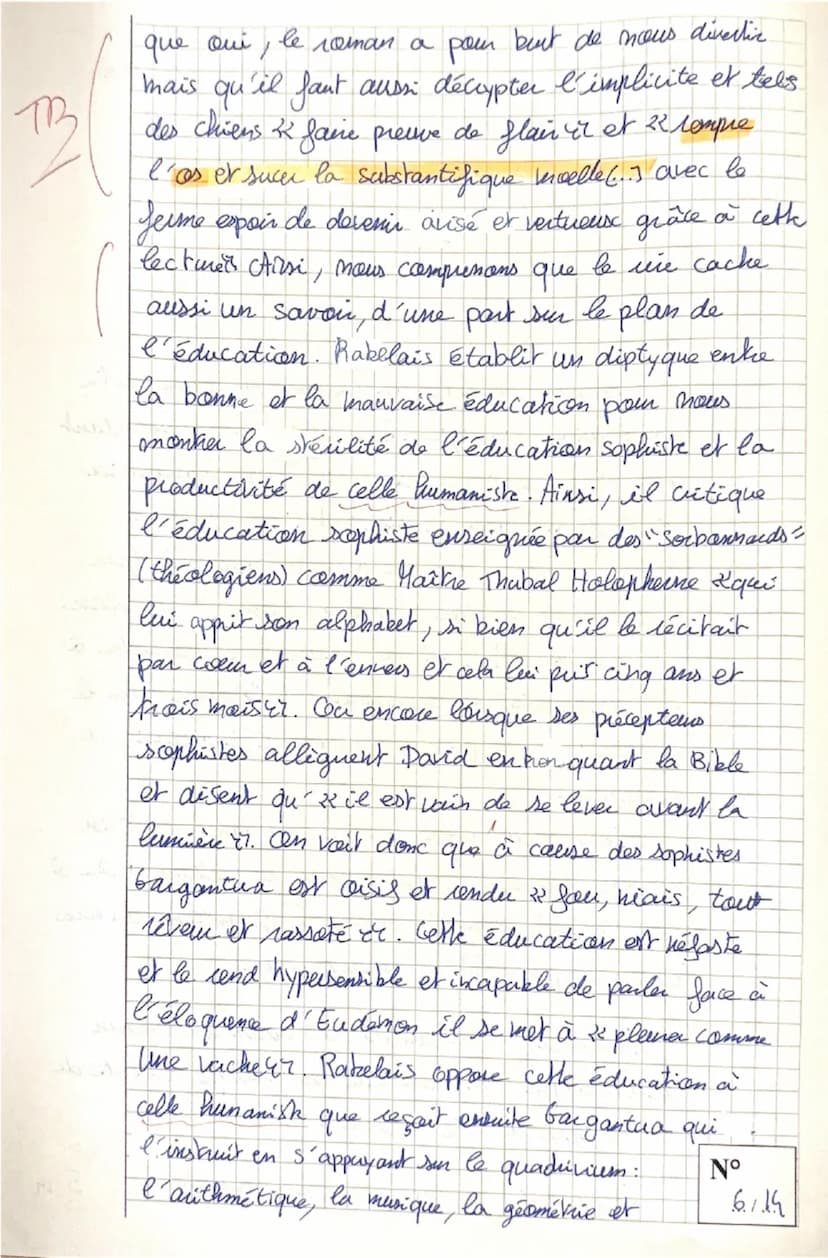 que oui, le roman a pour but de nous divertir
mais qu'il faut aussi décrypter l'implicite et tels
des chiens « faire preuve de flair » et « rompre
l'os et sucer la substantifique moelle (..) avec le
ferme espoir de devenir avisé et vertueux grâce à cette
lecture » Ainsi, nous comprenons que le rire cache
aussi un savoir, d'une part sur le plan de
l'éducation. Rabelais établit un diptyque entre
la bonne et la mauvaise éducation pour nous
montrer la stérilité de l'éducation sophiste et la
productivité de celle humaniste. Ainsi, il critique
l'éducation sophiste enseignée par des "Sorbonnards"
(théologiens) comme Maître Thubal Holopherne « qui
lui apprit son alphabet, si bien qu'il le récitait
par coeur et à l'envers et cela lui prit cinq ans et
trois mois ». Ou encore lorsque ses précepteurs
sophistes allèguent David en tronquant la Bible
et disent qu'« il est vain de se lever avant la
lumière ». On voit donc que à cause des sophistes
Gargantua est oisif et rendu « fou, niais, tout
rêveur et rassoté ». Cette éducation est néfaste
et le rend hypersensible et incapable de parler face à
l'éloquence d'Eudémon il se met à « pleurer comme
une vache ». Rabelais oppose cette éducation à
celle humaniste que reçoit ensuite Gargantua qui
l'instruit en s'appuyant sur le quadrivium :
l'arithmétique, la musique, la géométrie et
TB
N°
6./.14